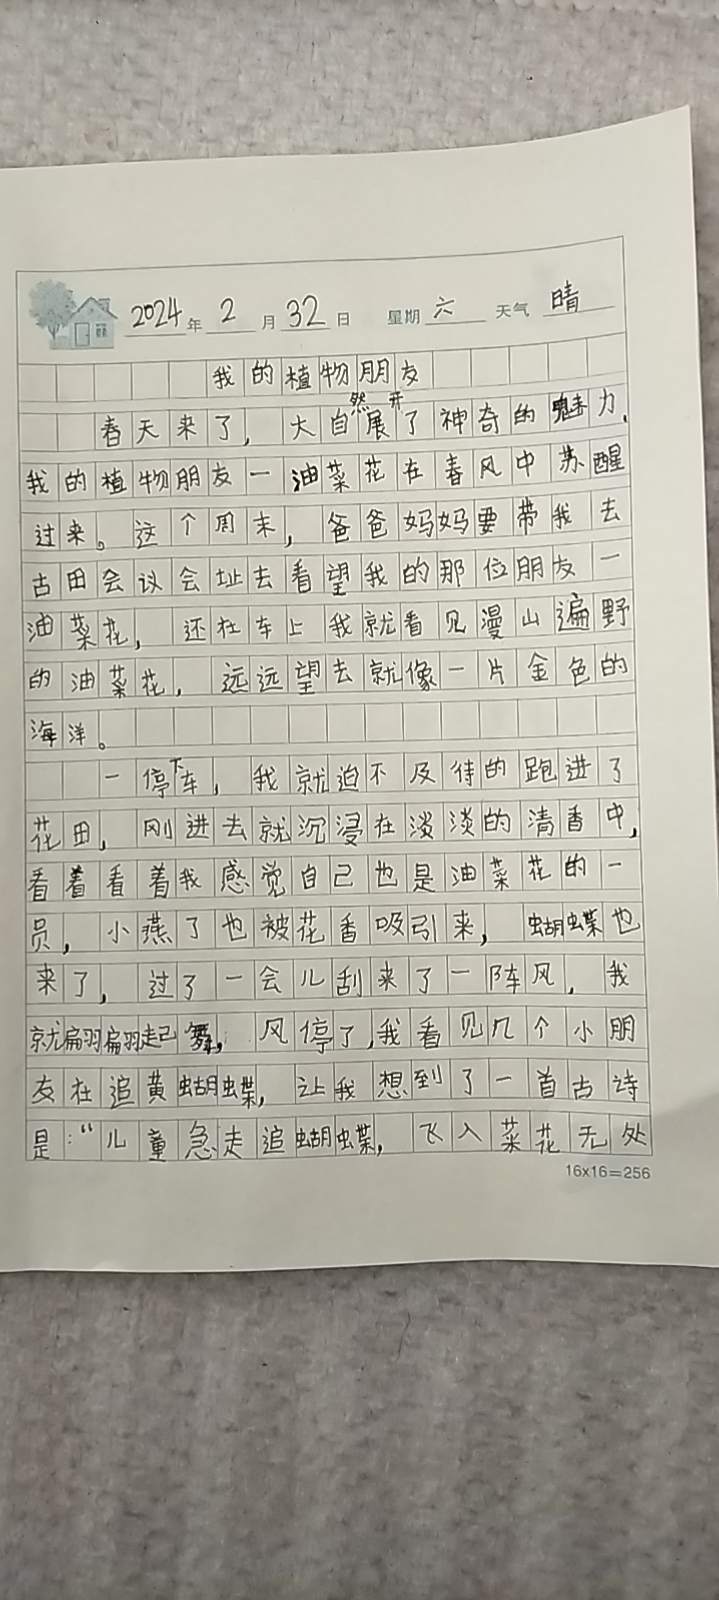 2024年2月32日 星期六 天气晴
我的植物朋友
春天来了，大自然展开了神奇的魅力，
我的植物朋友一油菜花在春风中苏醒
过来。这个周末，爸爸妈妈要带我去
古田会议会址去看望我的那位朋友一
油菜花，还在车上我就看见漫山遍野
的油菜花，远远望去就像一片金色的
海洋。
一停下车，我就迫不及待的跑进了
花田，刚进去就沉浸在淡淡的清香中，
看着看着我感觉自己也是油菜花的一
员，小燕了也被花香吸引来，蝴蝶也
来了，过了一会儿刮来了一阵风，我
就翩翩起舞，风停了，我看见几个小朋
友在追黄蝴蝶，让我想到了一首古诗
是：“儿童急走追蝴蝶，飞入菜花无处
16x16=256